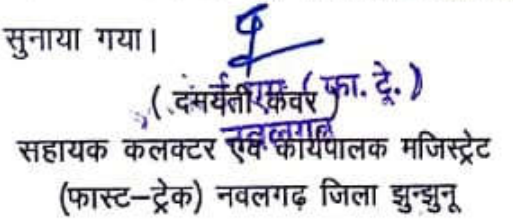 सुनाया गया।
(दमयंती कंवर)
(फा. ट्रे.)
नवलगढ
सहायक कलक्टर एवं कार्यपालक मजिस्ट्रेट
(फास्ट-ट्रेक) नवलगढ़ जिला झुन्झुनू